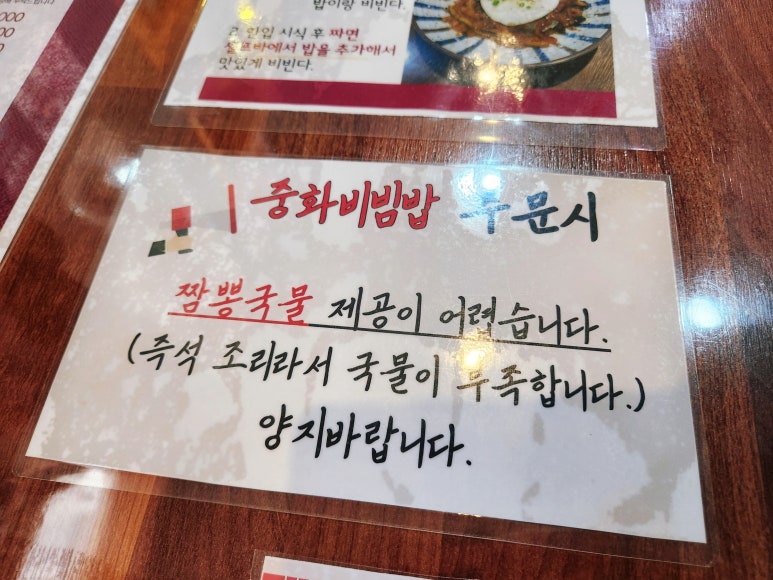 000
00
00
밥이랑 비빈다.
2. 한입 시식 후 짜면
셀프바에서 밥을 추가해서
맛있게 비빈다.
중화비빔밥 주문시
짬뽕국물 제공이 어렵습니다.
(즉석 조리라서 국물이 부족합니다.)
양지바랍니다.